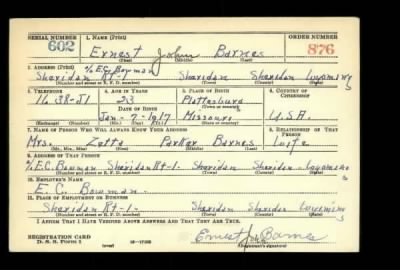 SERIAL NUMBER 1. NAME (Print) ORDER NUMBER
602 Ernest John Barnes 876
(First) (Middle) (Last)
2. ADDRESS (Print) % E.C. Bowman
Sheridan Rt-1- Sheridan Sheridan Wyoming
(Number and street or R. F. D. number) (Town) (County) (State)
3. TELEPHONE 4. AGE IN YEARS 5. PLACE OF BIRTH 6. COUNTRY OF CITIZENSHIP
16 38-J1 23 Plattsburg
DATE OF BIRTH (Town or county)
Jan-7-1917 Missouri U.S.A.
(Exchange) (Number) (Mo.) (Day) (Yr.) (State or country)
7. NAME OF PERSON WHO WILL ALWAYS KNOW YOUR ADDRESS 8. RELATIONSHIP OF THAT PERSON
Mrs. Zetta Parker Barnes Wife
(Mr., Mrs., Miss) (First) (Middle) (Last)
9. ADDRESS OF THAT PERSON
% E.C. Bowman Sheridan Rt-1- Sheridan Sheridan Wyoming
(Number and street or R. F. D. number) (Town) (County) (State)
10. EMPLOYER'S NAME
E. C. Bowman
11. PLACE OF EMPLOYMENT OR BUSINESS
Sheridan Rt-1- Sheridan Sheridan Wyoming
(Number and street or R. F. D. number) (Town) (County) (State)
I AFFIRM THAT I HAVE VERIFIED ABOVE ANSWERS AND THAT THEY ARE TRUE.
REGISTRATION CARD
D. S. S. FORM 1 (over) Ernest John Barnes
(Registrant's signature)